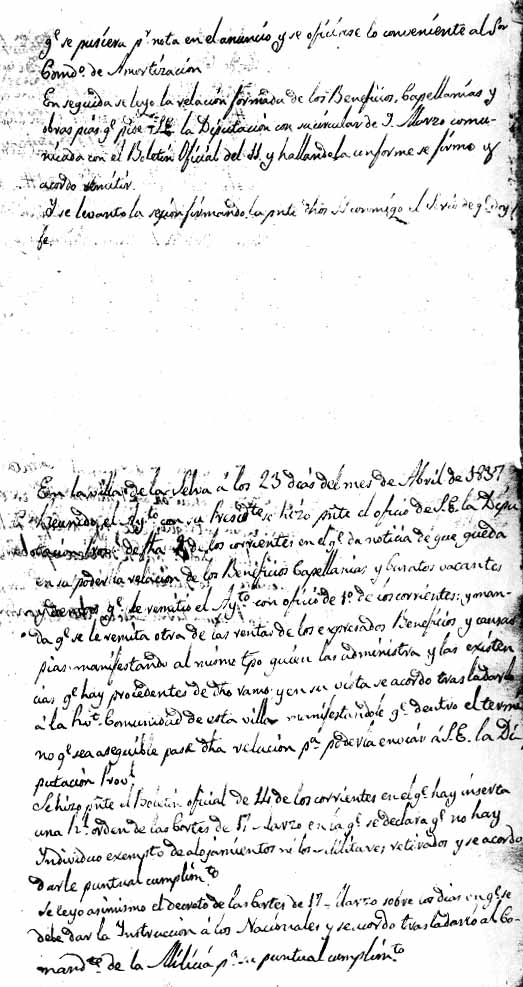 qe se pusiera pr nota en el anuncio y se oficiase lo conveniente al Sor
Comdo de Amortizacion
En seguida se leyo la relación formada de los Beneficios, Capellanias y
obras pias qe pide S.E. la Diputación con su circular de 9 Marzo comu-
nicada con el Boletin Oficial del 11 y hallandola conforme se firmo y
acordo remitir.
Y se levanto la sesion firmando la pnte dhos SS conmigo el Srio de qe doy
fe.
En la villa de la Selva á los 23 dias del mes de Abril de 1837
Reunido el Ayto con su Presidte se hizo pnte el oficio de S.E. la Dipu
tacion de fha de los corrientes en el qe da noticia de que queda
en su poder la relación de los Beneficios Capellanias y Curatos vacantes
qe le remitio el Ayto con oficio de 1o de los corrientes: y man-
da qe se le remita otra de las rentas de los expresados Beneficios y causas
pias manifestando al mismo tpo quien las administra y las existen
cias qe hay procedentes de dho ramo y en su vista se acordo trasladarlo
á la Comunidad de esta villa manifestandole qe dentro el termi
no qe sea asequible pase dha relación pa poderla enviar á S.E. la Di
putación Provl
Se hizo pnte el Boletin oficial de 14 de los corrientes en el qe hay inserta
una orden de las Cortes de 17 Marzo en la qe se declara qe no hay
Individuo exempto de alojamientos ni los Militares retirados y se acordo
darle puntual cumplimto
Se leyo asimismo el decreto de las Cortes de 17 Marzo sobre los dias en qe se
debe dar la Instrucción á los Nacionales y se acordo trasladarlo al Co-
mandte de la Milicia pa su puntual cumplimto